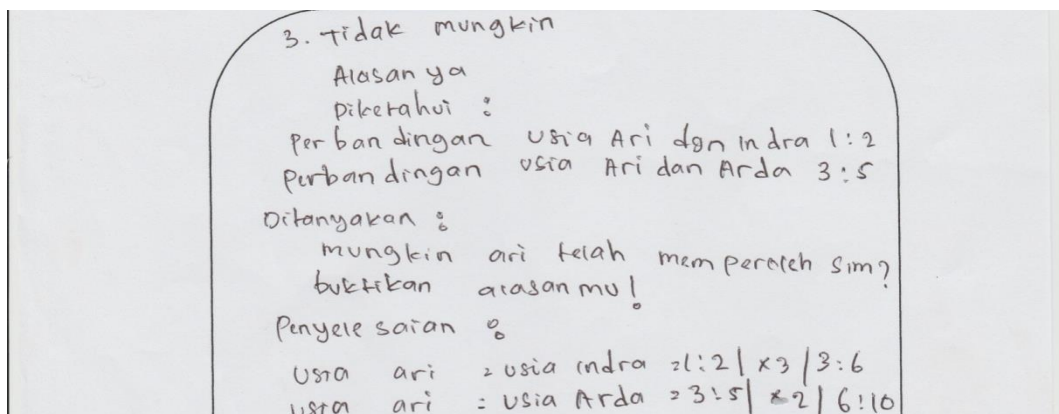 3. Tidak mungkin
Alasan ya
Diketahui :
Perbandingan usia Ari dgn indra 1:2
Perbandingan usia Ari dan Arda 3:5
Ditanyakan :
mungkin ari telah memperoleh sim?
buktikan alasan mu!
Penyelesaian :
usia ari : usia indra = 1:2 | x3 | 3:6
usia ari : usia Arda = 3:5 | x2 | 6:10